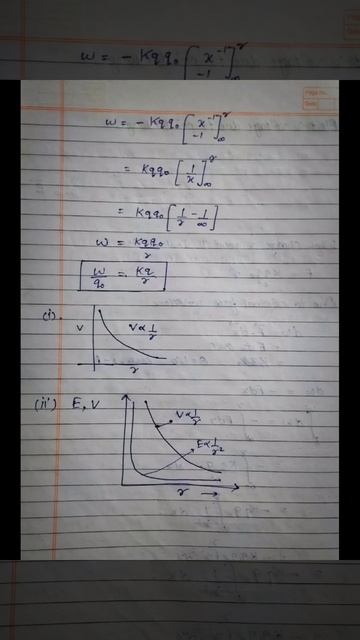 w = - Kqq₀ [x⁻¹/-1]^r_∞
w = - Kqq₀ [x⁻¹/-1]^r_∞
= Kqq₀ [1/x]^r_∞
= Kqq₀ [1/r - 1/∞]
w = Kqq₀/r
w/q₀ = Kq/r
(i).
V
V∝1/r
r
(ii) E, V
V∝1/r
E∝1/r²
r →